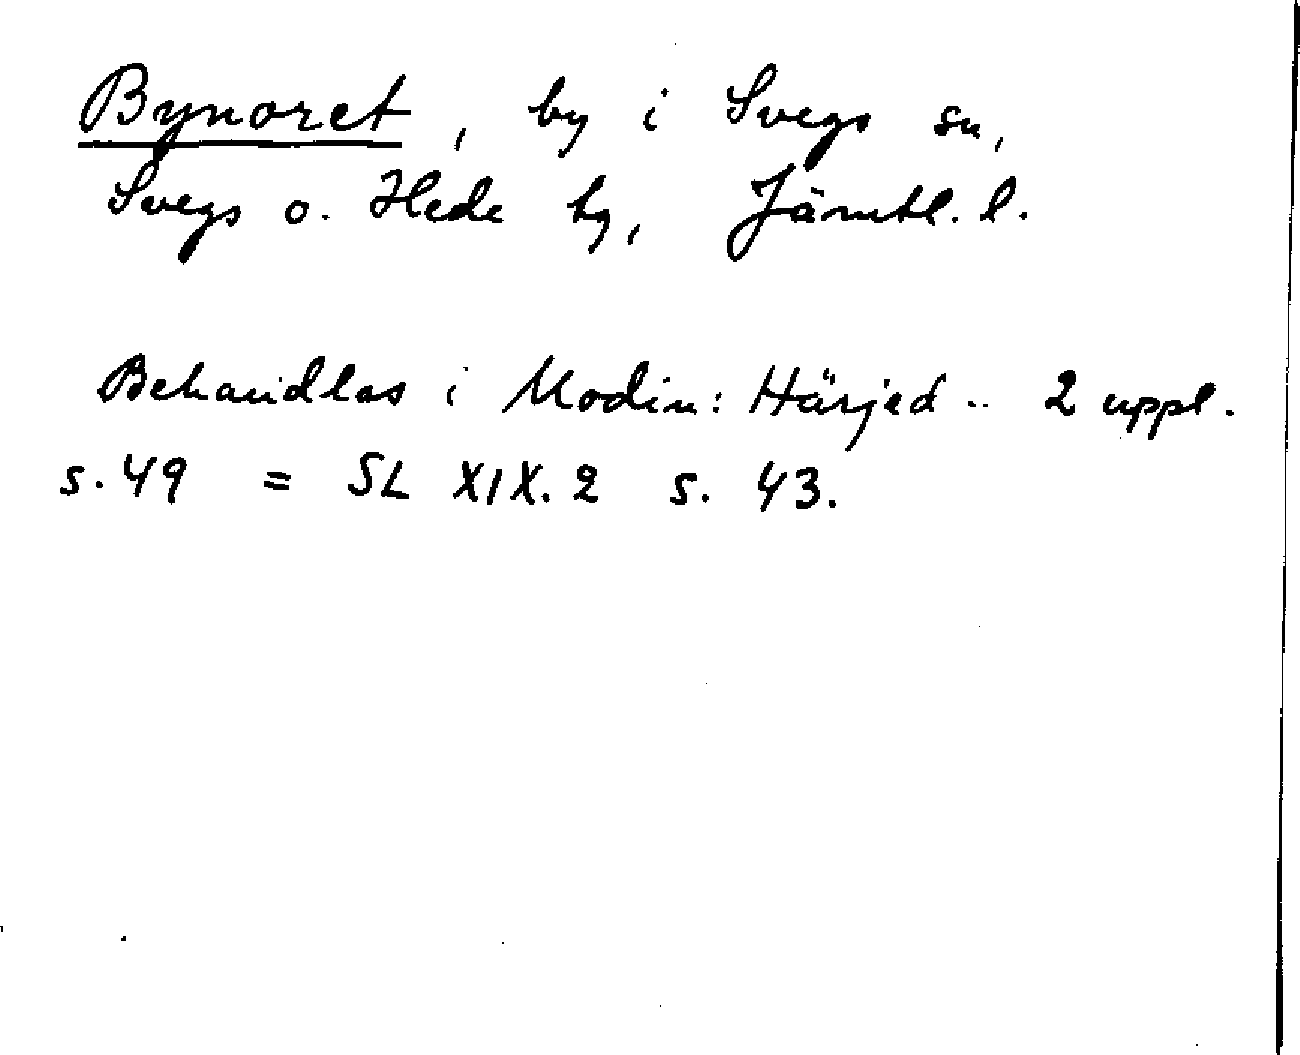 Bynoret, by i Svegs sn,
Svegs o. Hede tg, Jämtl. l.
Behandlas i Modin: Härjed.. 2 uppl.
s. 49 = SL XIX. 2 s. 43.